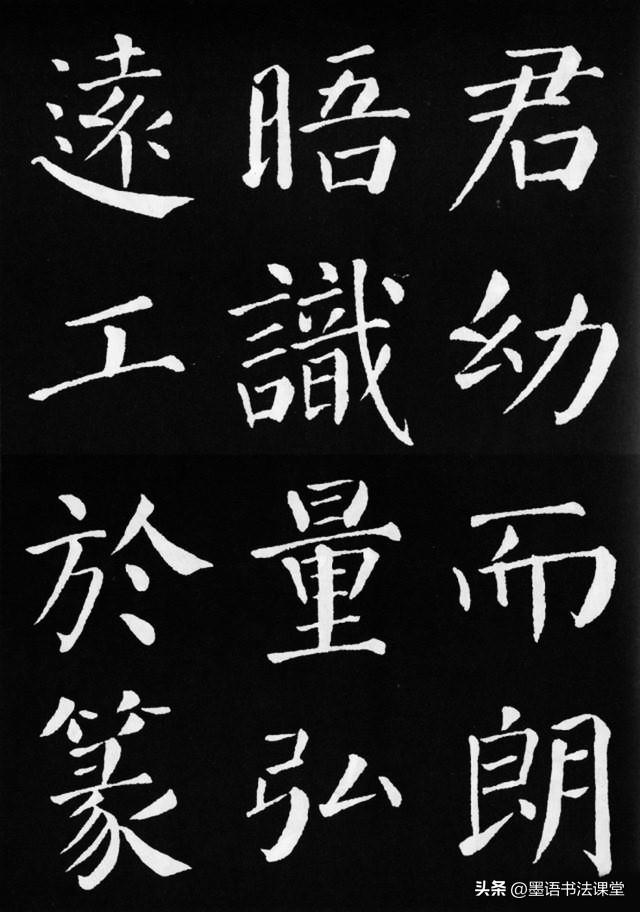 君幼而朗
晤識量弘
遠工於篆
头条 @墨语书法课堂